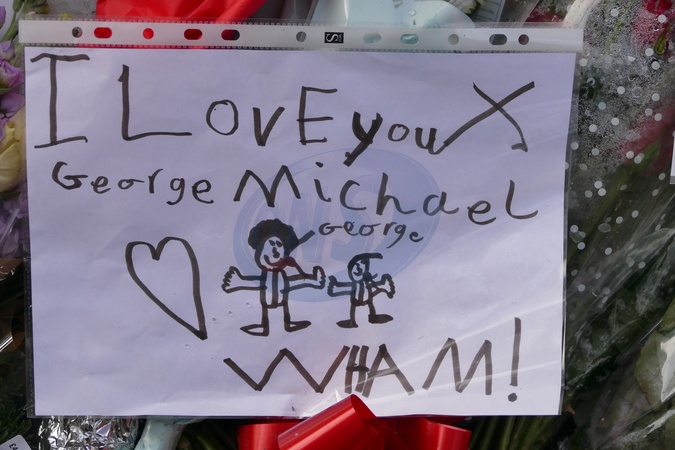 I LovE you X
George Michael
George
WHAM!